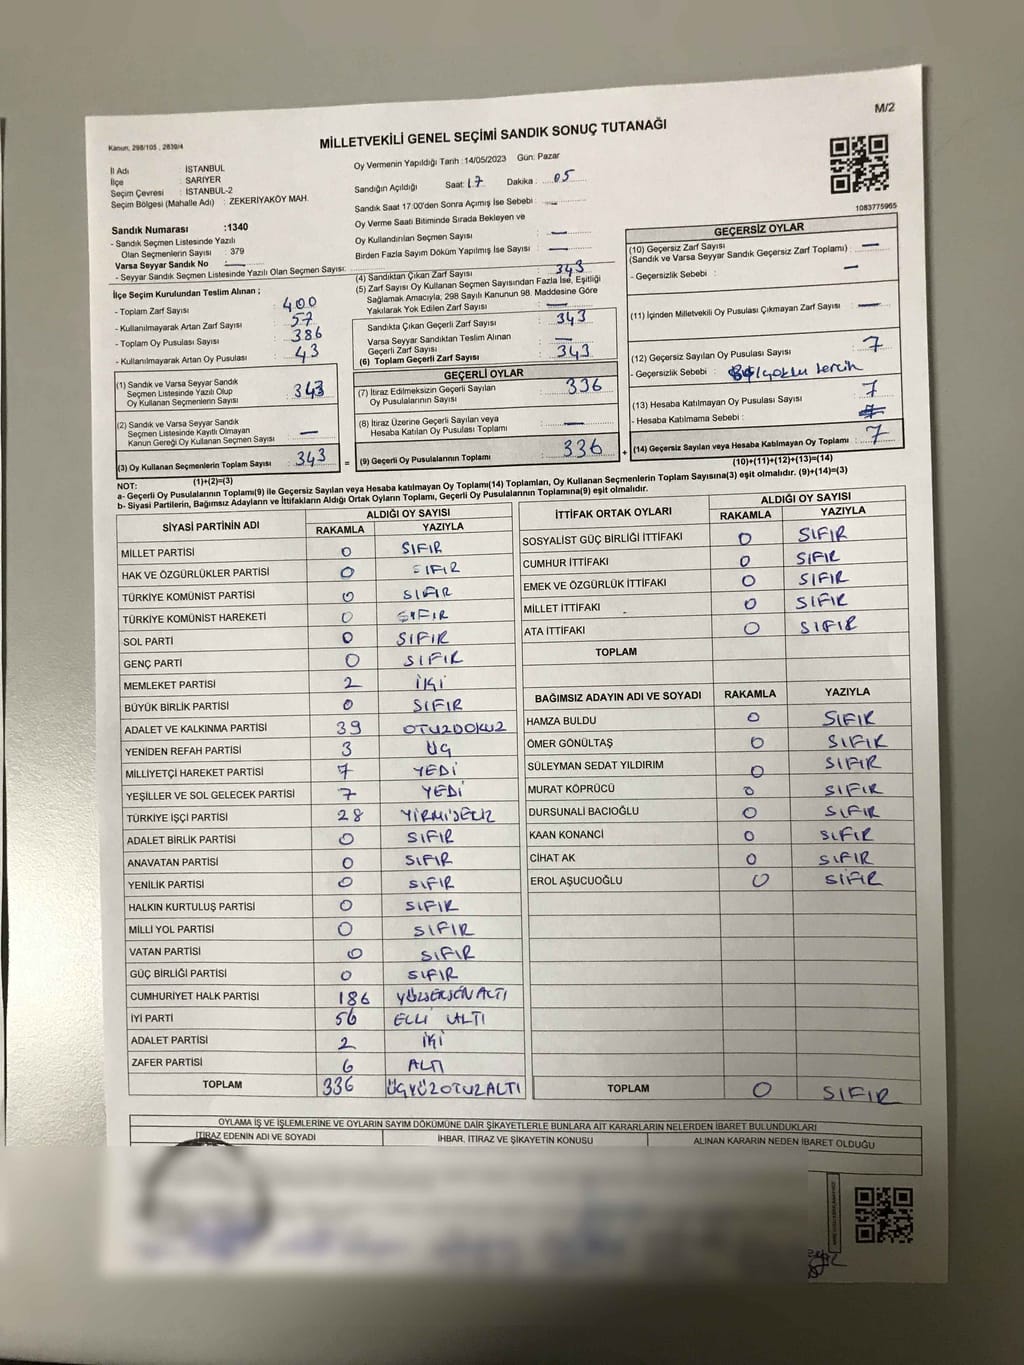 M/2
Kanun, 298/105 , 2839/4
MİLLETVEKİLİ GENEL SEÇİMİ SANDIK SONUÇ TUTANAĞI
İl Adı : İSTANBUL
İlçe : SARIYER
Seçim Çevresi : İSTANBUL-2
Seçim Bölgesi (Mahalle Adı) : ZEKERİYAKÖY MAH.
Sandık Numarası :1340
- Sandık Seçmen Listesinde Yazılı
Olan Seçmenlerin Sayısı : 379
Varsa Seyyar Sandık No : —
- Seyyar Sandık Seçmen Listesinde Yazılı Olan Seçmen Sayısı:
Oy Vermenin Yapıldığı Tarih :14/05/2023 Gün: Pazar
Sandığın Açıldığı Saat: 17 Dakika : 05
Sandık Saat 17.00'den Sonra Açımış İse Sebebi : —
Oy Verme Saati Bitiminde Sırada Bekleyen ve
Oy Kullandırılan Seçmen Sayısı : —
Birden Fazla Sayım Döküm Yapılmış İse Sayısı : —
1083775965
İlçe Seçim Kurulundan Teslim Alınan ;
- Toplam Zarf Sayısı : 400
- Kullanılmayarak Artan Zarf Sayısı : 57
- Toplam Oy Pusulası Sayısı : 386
- Kullanılmayarak Artan Oy Pusulası : 43
(1) Sandık ve Varsa Seyyar Sandık
Seçmen Listesinde Yazılı Olup
Oy Kullanan Seçmenlerin Sayısı : 343
(2) Sandık ve Varsa Seyyar Sandık
Seçmen Listesinde Kayıtlı Olmayan
Kanun Gereği Oy Kullanan Seçmen Sayısı : —
(3) Oy Kullanan Seçmenlerin Toplam Sayısı : 343
(1)+(2)=(3)
(4) Sandıktan Çıkan Zarf Sayısı : 343
(5) Zarf Sayısı Oy Kullanan Seçmen Sayısından Fazla İse, Eşitliği
Sağlamak Amacıyla, 298 Sayılı Kanunun 98. Maddesine Göre
Yakılarak Yok Edilen Zarf Sayısı : —
Sandıkta Çıkan Geçerli Zarf Sayısı : 343
Varsa Seyyar Sandıktan Teslim Alınan
Geçerli Zarf Sayısı : —
(6) Toplam Geçerli Zarf Sayısı : 343
GEÇERLİ OYLAR
(7) İtiraz Edilmeksizin Geçerli Sayılan
Oy Pusulalarının Sayısı : 336
(8) İtiraz Üzerine Geçerli Sayılan veya
Hesaba Katılan Oy Pusulası Toplamı : —
= (9) Geçerli Oy Pusulalarının Toplamı : 336 +
GEÇERSİZ OYLAR
(10) Geçersiz Zarf Sayısı : —
(Sandık ve Varsa Seyyar Sandık Geçersiz Zarf Toplamı)
- Geçersizlik Sebebi : —
(11) İçinden Milletvekili Oy Pusulası Çıkmayan Zarf Sayısı : —
(12) Geçersiz Sayılan Oy Pusulası Sayısı : 7
- Geçersizlik Sebebi :
(13) Hesaba Katılmayan Oy Pusulası Sayısı : 7
- Hesaba Katılmama Sebebi :
(14) Geçersiz Sayılan veya Hesaba Katılmayan Oy Toplamı : 7
(10)+(11)+(12)+(13)=(14)
NOT:
a- Geçerli Oy Pusulalarının Toplamı(9) ile Geçersiz Sayılan veya Hesaba katılmayan Oy Toplamı(14) Toplamları, Oy Kullanan Seçmenlerin Toplam Sayısına(3) eşit olmalıdır. (9)+(14)=(3)
b- Siyasi Partilerin, Bağımsız Adayların ve İttifakların Aldığı Ortak Oyların Toplamı, Geçerli Oy Pusulalarının Toplamına(9) eşit olmalıdır.
SİYASİ PARTİNİN ADI ALDIĞI OY SAYISI
RAKAMLA YAZIYLA
MİLLET PARTİSİ 0 SIFIR
HAK VE ÖZGÜRLÜKLER PARTİSİ 0 SIFIR
TÜRKİYE KOMÜNİST PARTİSİ 0 SIFIR
TÜRKİYE KOMÜNİST HAREKETİ 0 SIFIR
SOL PARTİ 0 SIFIR
GENÇ PARTİ 0 SIFIR
MEMLEKET PARTİSİ 2 İKİ
BÜYÜK BİRLİK PARTİSİ 0 SIFIR
ADALET VE KALKINMA PARTİSİ 39 OTUZDOKUZ
YENİDEN REFAH PARTİSİ 3 ÜÇ
MİLLİYETÇİ HAREKET PARTİSİ 7 YEDİ
YEŞİLLER VE SOL GELECEK PARTİSİ 7 YEDİ
TÜRKİYE İŞÇİ PARTİSİ 28 YİRMİSEKİZ
ADALET BİRLİK PARTİSİ 0 SIFIR
ANAVATAN PARTİSİ 0 SIFIR
YENİLİK PARTİSİ 0 SIFIR
HALKIN KURTULUŞ PARTİSİ 0 SIFIR
MİLLİ YOL PARTİSİ 0 SIFIR
VATAN PARTİSİ 0 SIFIR
GÜÇ BİRLİĞİ PARTİSİ 0 SIFIR
CUMHURİYET HALK PARTİSİ 186 YÜZSEKSENALTI
İYİ PARTİ 56 ELLİ ALTI
ADALET PARTİSİ 2 İKİ
ZAFER PARTİSİ 6 ALTI
TOPLAM 336 ÜÇYÜZOTUZALTI
İTTİFAK ORTAK OYLARI ALDIĞI OY SAYISI
RAKAMLA YAZIYLA
SOSYALİST GÜÇ BİRLİĞİ İTTİFAKI 0 SIFIR
CUMHUR İTTİFAKI 0 SIFIR
EMEK VE ÖZGÜRLÜK İTTİFAKI 0 SIFIR
MİLLET İTTİFAKI 0 SIFIR
ATA İTTİFAKI 0 SIFIR
TOPLAM
BAĞIMSIZ ADAYIN ADI VE SOYADI RAKAMLA YAZIYLA
HAMZA BULDU 0 SIFIR
ÖMER GÖNÜLTAŞ 0 SIFIR
SÜLEYMAN SEDAT YILDIRIM 0 SIFIR
MURAT KÖPRÜCÜ 0 SIFIR
DURSUNALİ BACIOĞLU 0 SIFIR
KAAN KONANCİ 0 SIFIR
CİHAT AK 0 SIFIR
EROL AŞUCUOĞLU 0 SIFIR
TOPLAM 0 SIFIR
OYLAMA İŞ VE İŞLEMLERİNE VE OYLARIN SAYIM DÖKÜMÜNE DAİR ŞİKAYETLERLE BUNLARA AİT KARARLARIN NELERDEN İBARET BULUNDUKLARI
İTİRAZ EDENİN ADI VE SOYADI İHBAR, İTİRAZ VE ŞİKAYETİN KONUSU ALINAN KARARIN NEDEN İBARET OLDUĞU